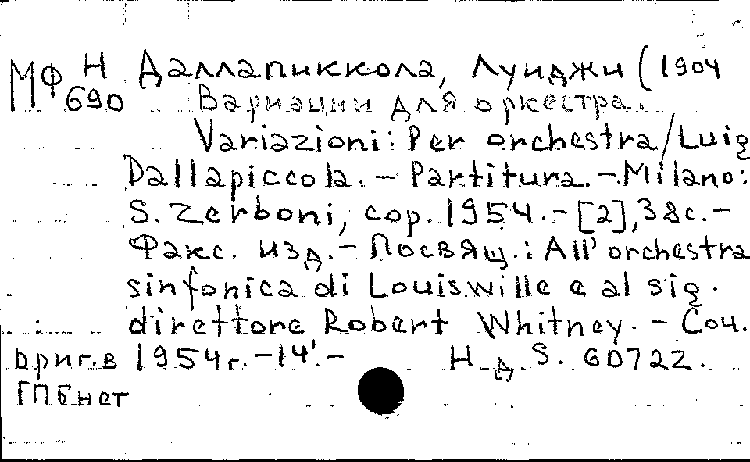 МФ Н 690 Даллапиккола, Луиджи (1904
Вариации для оркестра.
Variazioni: Per orchestra/Luig
Dallapiccola. - Partitura. - Milano:
S. Zerboni, cop. 1954. - [2], 38с. -
Факс. изд. - Посвящ.: All' orchestra
sinfonica di Louiswille e al sig.
direttore Robert Whitney. - Соч.
ориг. в 1954г. - 14'. - Н. д. S. 6072Z.
ГПБ нет